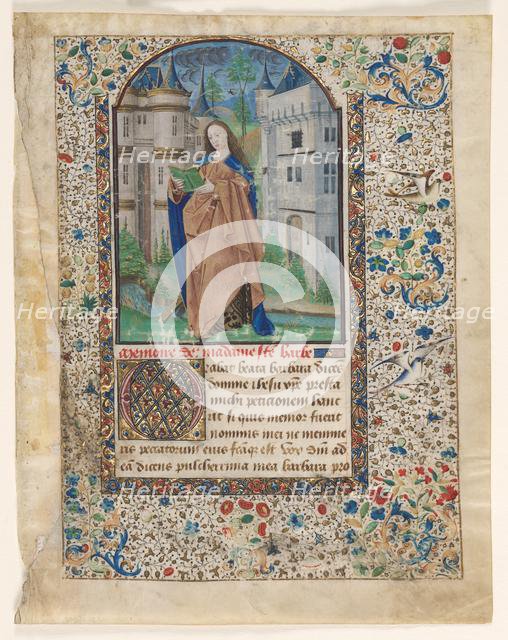 memoire de madame ste barbe
rabat beata barbara dicēs
Domine ihesu xpe presta
michi peticionem hanc
ut si quis memor fuerit
nominis mei ne memine
ris peccatorum eius
ad
eā dicens pulcherrima mea barbara pro
Heritage
Heritage
Heritage
Heritage
Heritage
Heritage
Heritage
Heritage